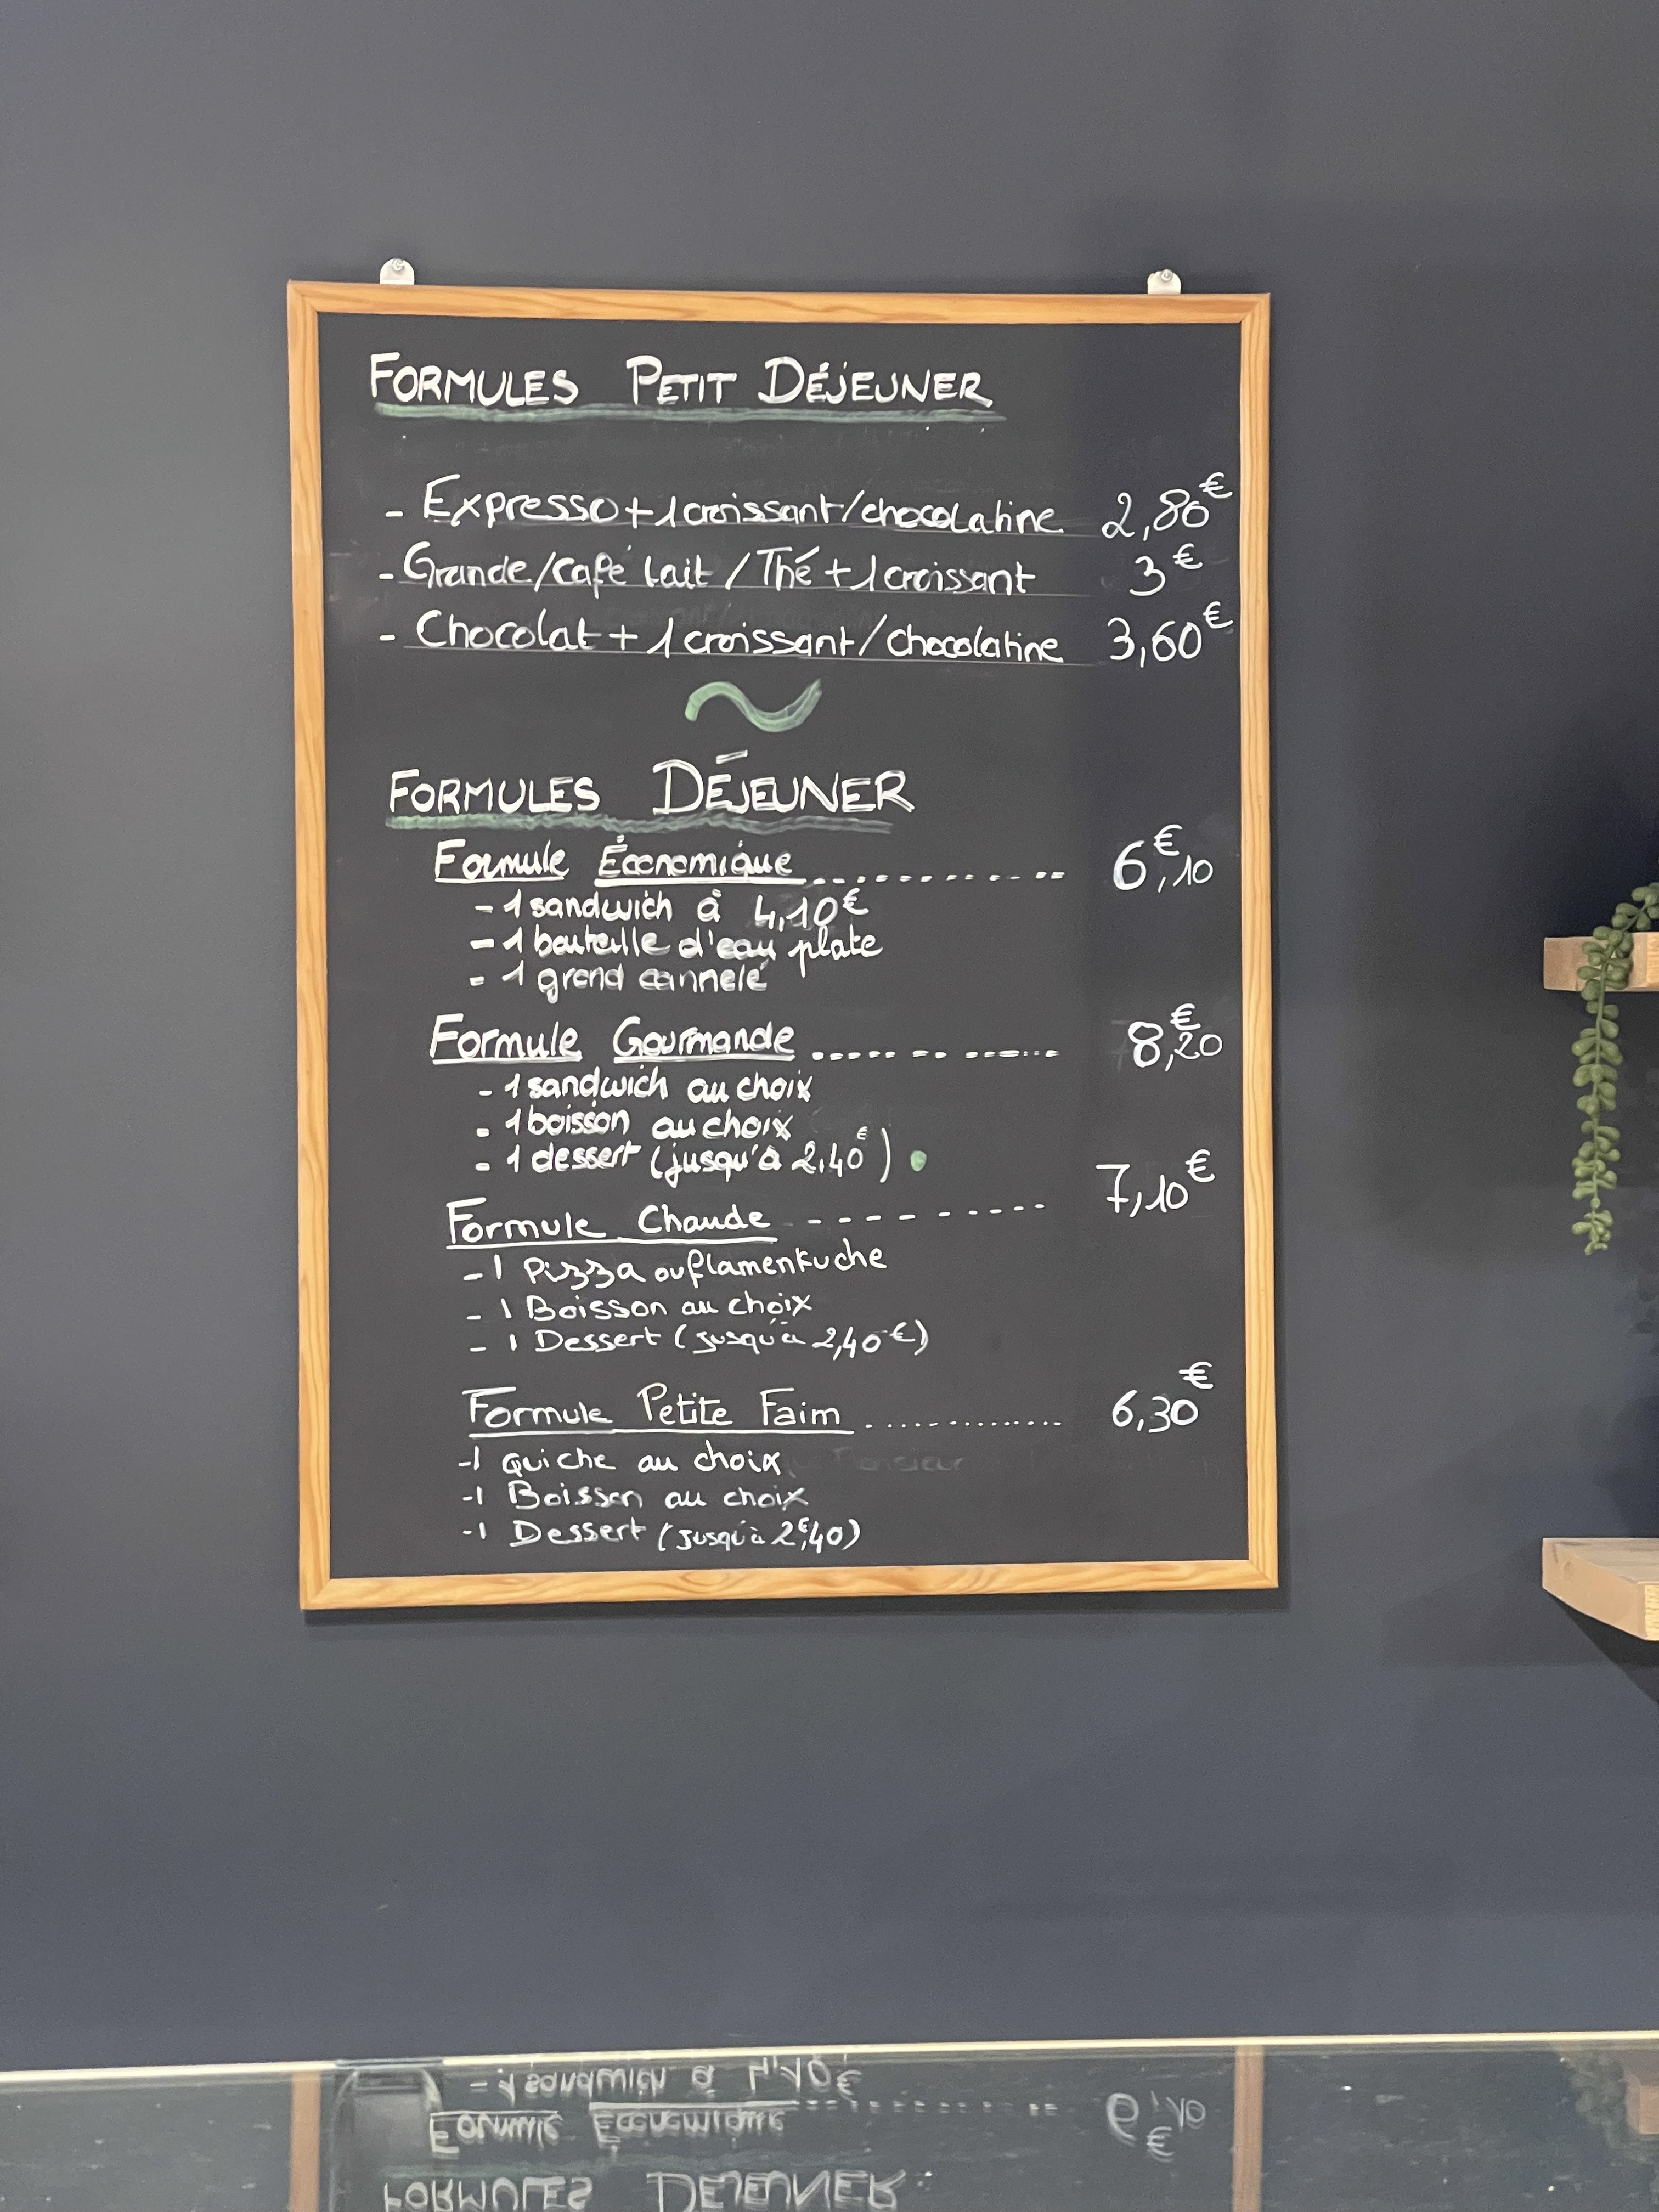 FORMULES PETIT DÉJEUNER
- Expresso + 1 croissant/chocolatine 2,80€
- Grande/café lait / Thé + 1 croissant 3€
- Chocolat + 1 croissant/chocolatine 3,60€
~
FORMULES DÉJEUNER
Formule Économique ............ 6€,10
- 1 sandwich à 4,10€
- 1 bouteille d'eau plate
- 1 grand cannelé
Formule Gourmande ............ 8€,20
- 1 sandwich au choix
- 1 boisson au choix
- 1 dessert (jusqu'à 2,40€)
Formule Chaude - - - - - - - - - - 7,10€
- 1 Pizza ou flamenkuche
- 1 Boisson au choix
- 1 Dessert (jusqu'à 2,40€)
Formule Petite Faim ............. 6,30€
-1 Quiche au choix
-1 Boisson au choix
-1 Dessert (jusqu'à 2€,40)
- 1 sandwich à 4,10€
Formule Économique ............ 6€,10
FORMULES DÉJEUNER